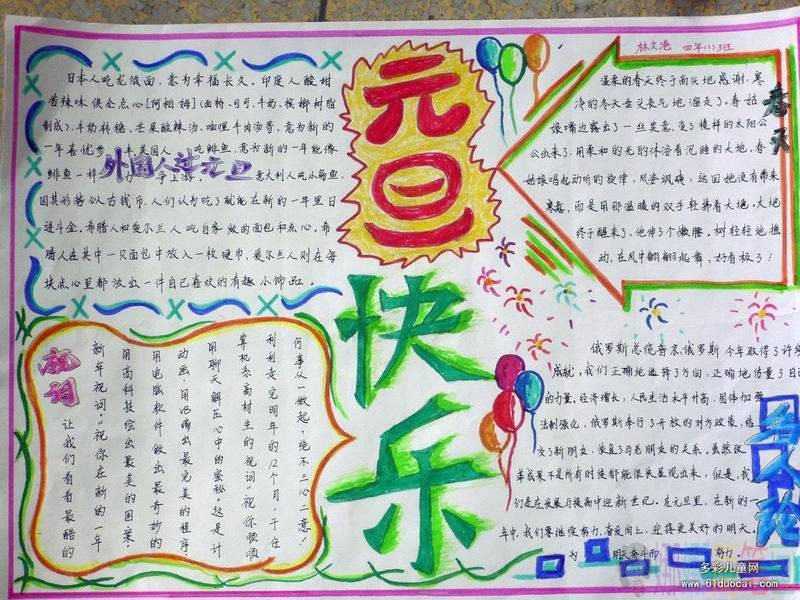 林文港 四年(1)3班
元旦
快乐
外国人过元旦
日本人吃龙须面，意为幸福长久。印度人酸甜
苦辣味俱全点心[何柏姆](面粉、可可、牛奶、槟榔树脂
制成)、牛奶砖糖、芒果酸辣汤、咖哩牛肉汤等，意为新的
一年喜忧参 吃鲱鱼，意为新的一年能像
鲱鱼一样 争上游 意大利人吃小扁鱼，
因其形酷似古钱币，人们认为吃了就能在新的一年里日
进斗金。希腊人和爱尔兰人吃自家做的面包和点心。希
腊人在其中一只面包中放入一枚硬币，爱尔兰人则在每
块点心里都放出一件自己喜欢的有趣小饰品。
春天
温柔的春天终于面头地感谢，寒
冷的冬天垂头丧气地溜走了。春姑
娘嘴边露出了一丝笑意，变了模样的太阳公
公出来了，用柔和的光的沐浴着沉睡的大地。春
姑娘唱起动听的旋律，风姿飒磅，这回她没有带来
寒霜，而是用那温暖的双手轻拂着大地。大地
终于醒来了，他伸了个懒腰。树轻轻地摇
动，在风中翩翩起舞，好看极了！
祝词
让我们看看最酷的
新年祝词：“祝你在新的一年
用高科技绘出最美的图案，
用电脑软件做出最奇妙的
动画，用VB编出最完美的程序
用聊天解压心中的蜜秘。”这是计
算机系高材生的祝词“祝你顺顺
利利走完明年的12个月，千任
何事从一做起，绝不三心二意！
名人论
俄罗斯总统普京：俄罗斯今年取得了许
成就，我们正确地选择了方向，正确地估量了自
的力量。经济增长，人民生活水平升高，国体加强
法制强化，俄罗斯奉行了开放的对方政策，结
交了新朋友，恢复了与老朋友的关系。虽然改
革成果不是所有时候都能很快显现出来，但是，我
们是在发展与提高中迎新世纪。在元旦里，在新的一
年中，我们要继续努力，奋发向上，迎接更美好的明天，
为 明天奋斗而 努力。
多彩儿童网
www.61duocai.com